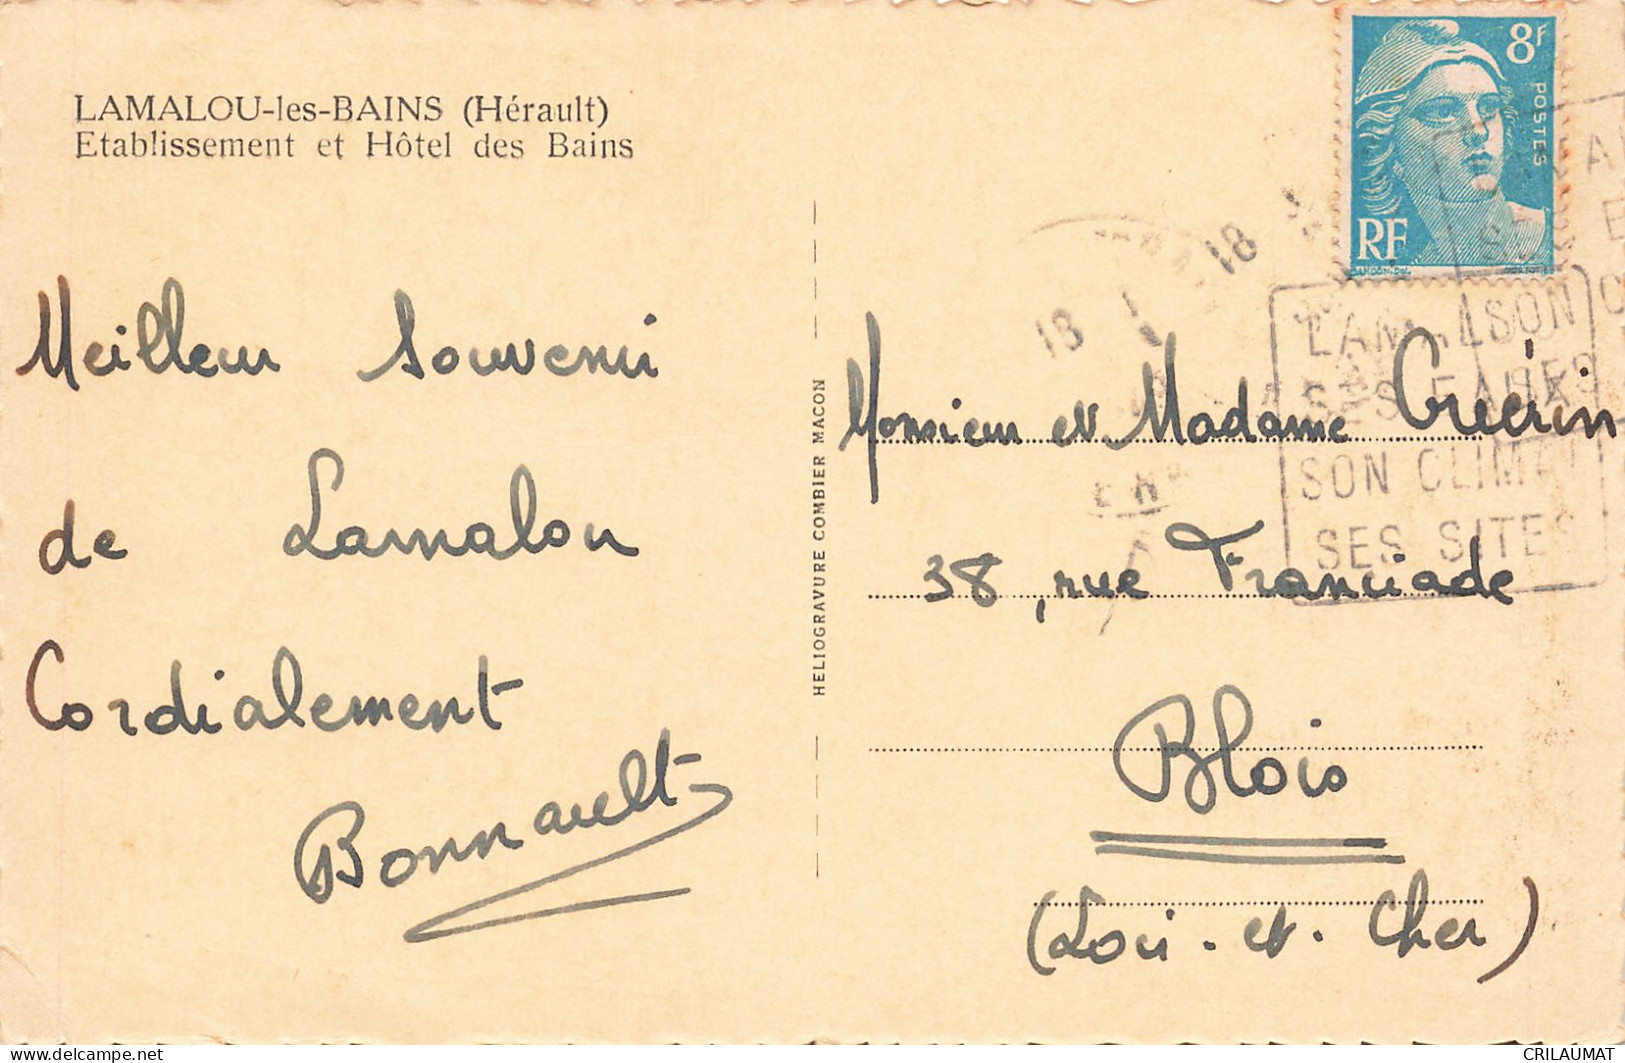 LAMALOU-les-BAINS (Hérault)
Etablissement et Hôtel des Bains
Meilleur Souvenir
de Lamalou
Cordialement
Bonnault
HELIOGRAVURE COMBIER MACON
8F
POSTES
RF
18
18
SON
SES EAUX
SON CLIMAT
SES SITES
Monsieur et Madame Guérin
38, rue Franciade
Blois
(Loir-et-Cher)
delcampe.net
CRILAUMAT